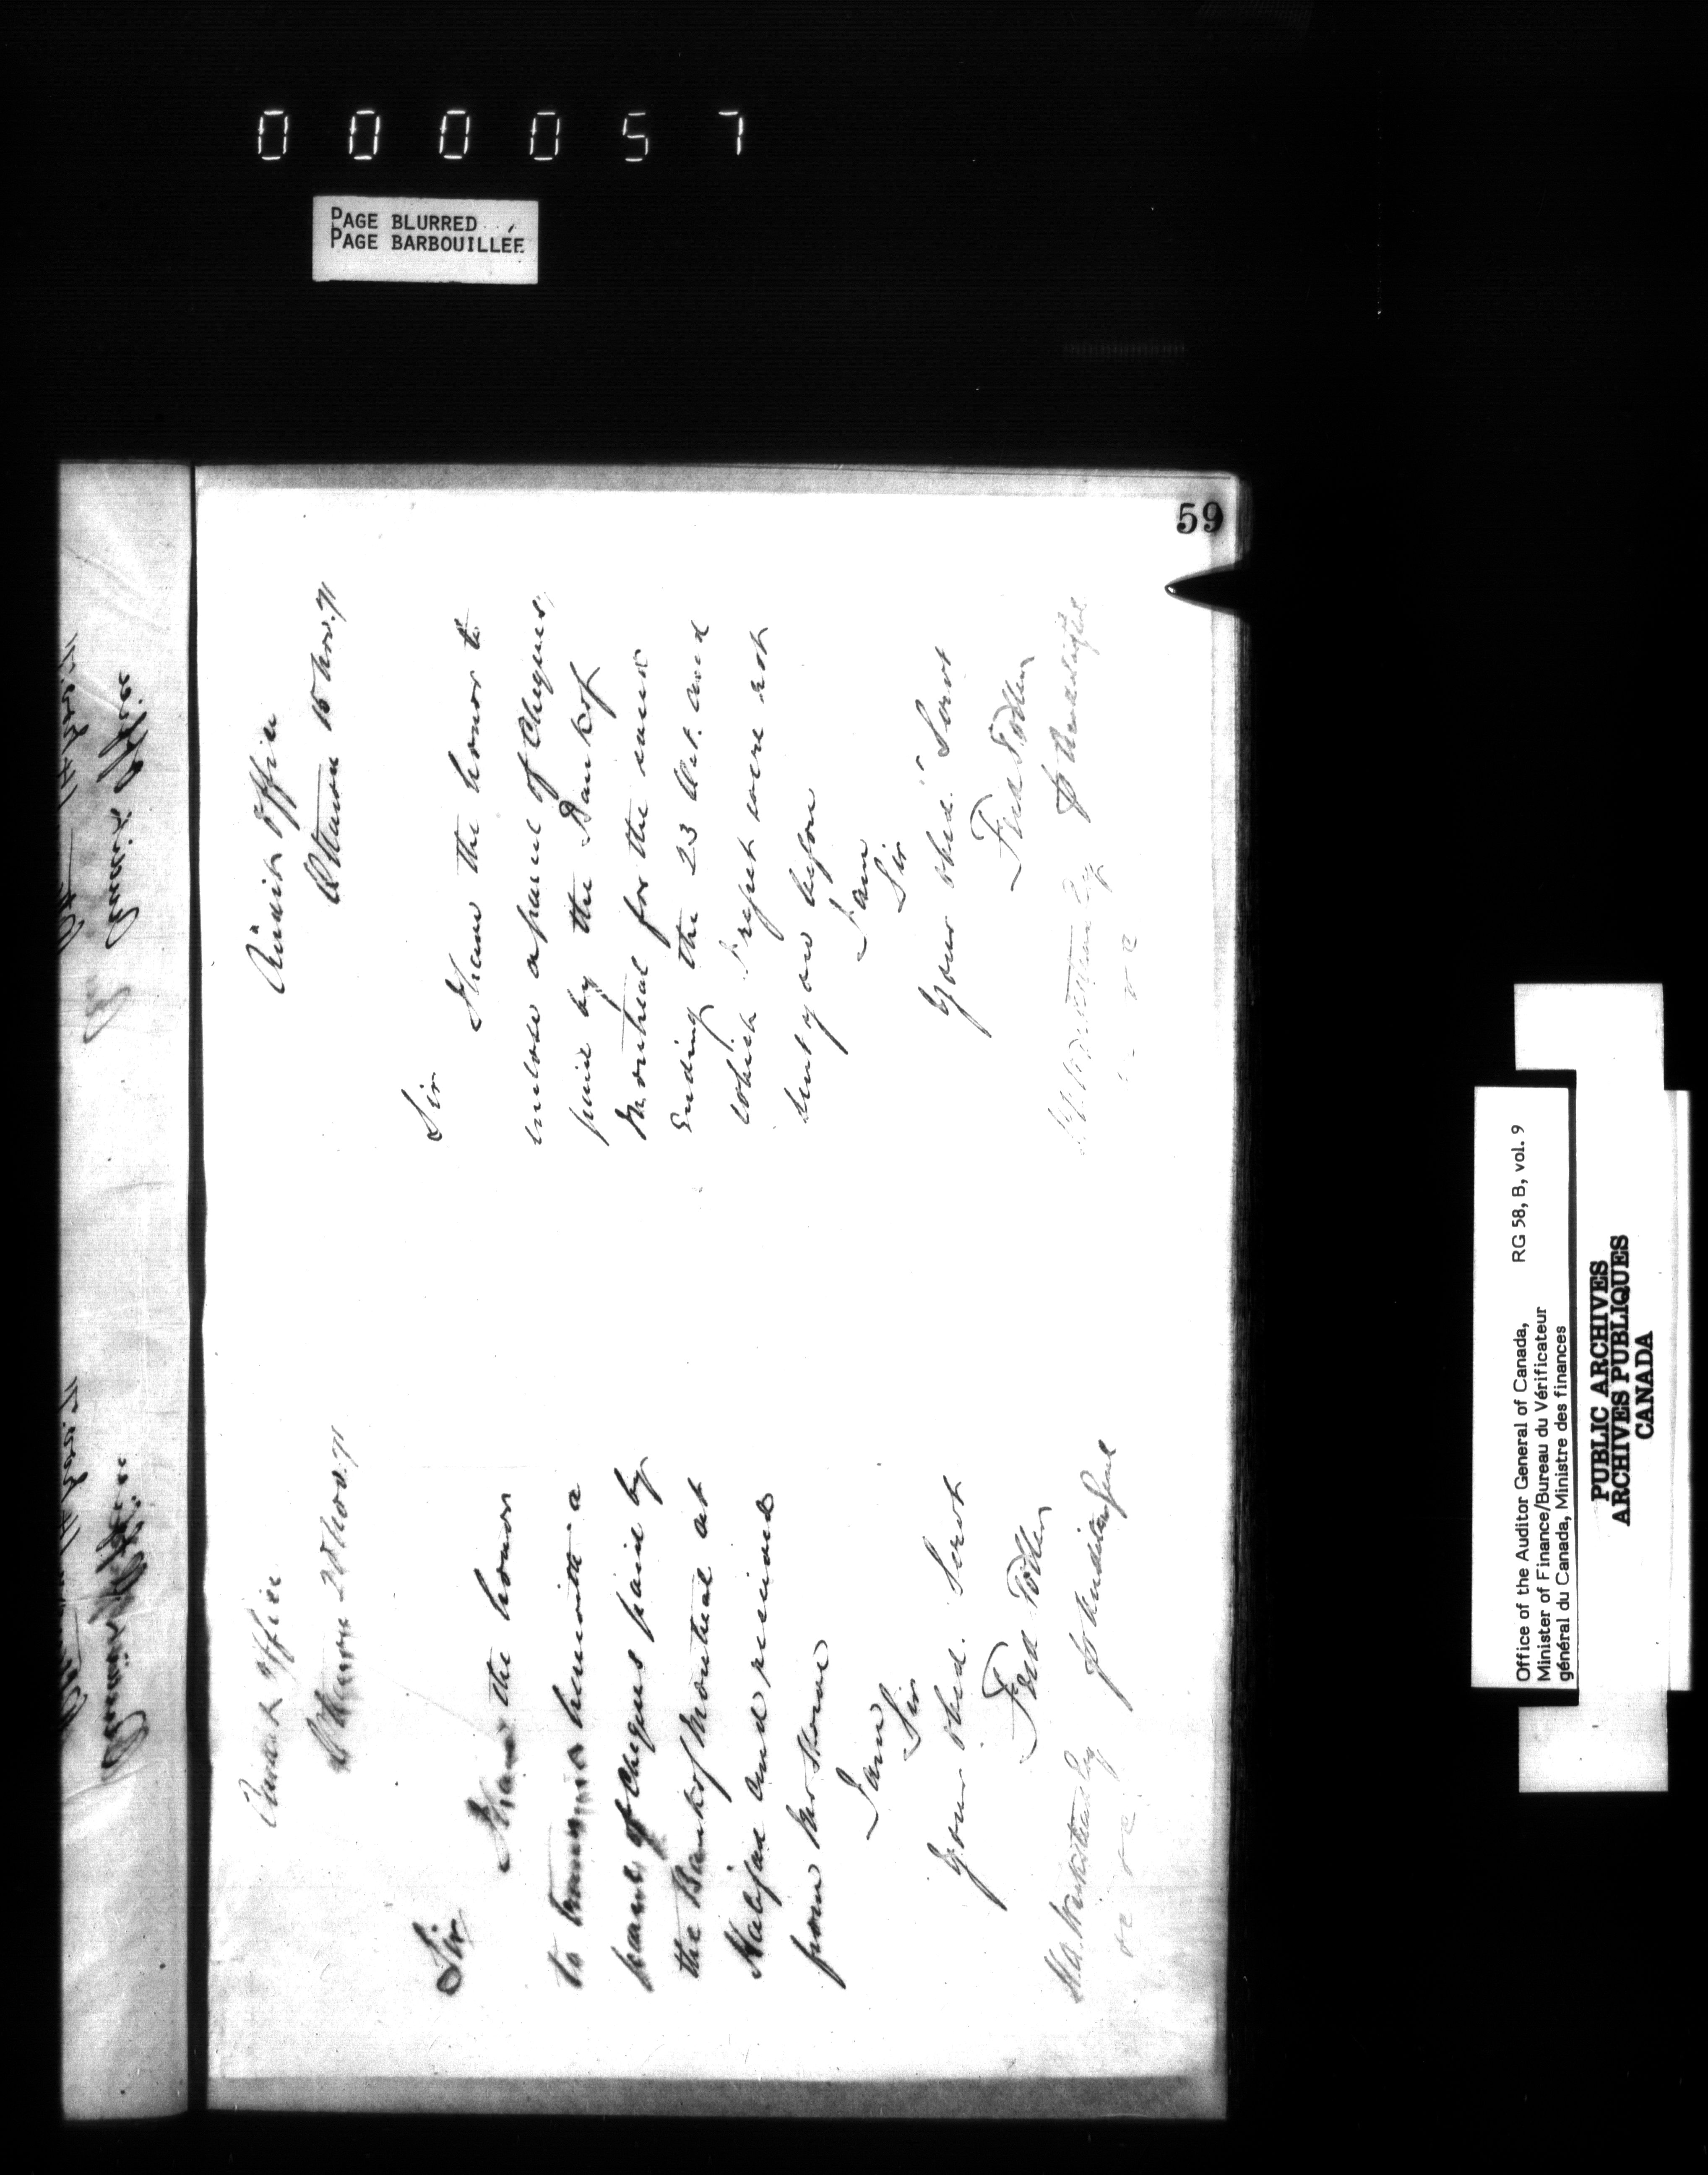 000057
PAGE BLURRED
PAGE BARBOUILLÉE
59
Audit Office
Ottawa 20 Nov. 71
Sir
I have the honor
to transmit herewith a
parcel of Cheques paid by
the Bank of Montreal at
Halifax and received
from Mr Stone
I am
Sir
Your Obed. Servt
Fred Toller
for Auditor Genl
&c &c
Audit Office
Ottawa 15 Nov. 71
Sir
I have the honor to
enclose a parcel of Cheques,
paid by the Bank of
Montreal for the week
Ending the 23 Oct. and
which I regret were not
sent you before
I am
Sir
Your Obed. Servt
Fred Toller
&c
Office of the Auditor General of Canada, RG 58, B, vol. 9
Minister of Finance/Bureau du Vérificateur
général du Canada, Ministre des finances
PUBLIC ARCHIVES
ARCHIVES PUBLIQUES
CANADA